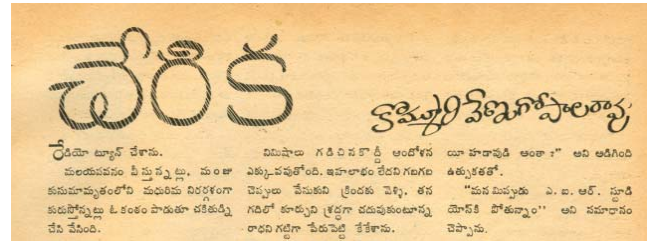 చేరిక
కొమ్మూరి వేణుగోపాలరావు
రేడియో ట్యూన్ చేశాను.
మలయపవనం వీస్తున్నట్లు, మంజు
కుసుమామృతంలోని మధురిమ నిరర్గళంగా
కురుస్తోన్నట్లు ఓ కంఠం పాడుతూ చకితుడ్ని
చేసి వేసింది.
నిమిషాలు గడిచినకొద్దీ ఆందోళన
ఎక్కువవుతోంది. ఇహలాభం లేదని గబగబ
చెప్పులు వేసుకుని క్రిందకు వెళ్ళి, తన
గదిలో కూర్చుని శ్రద్ధగా చదువుకుంటూన్న
రాధని గట్టిగా పేరుపెట్టి కేకేశాను.
యీ హడావుడి అంతా?” అని అడిగింది
ఉత్సుకతతో.
“మనమిప్పుడు ఎ. ఐ. ఆర్. స్టూడి
యోస్‌కి పోతున్నాం” అని సమాధానం
చెప్పాను.